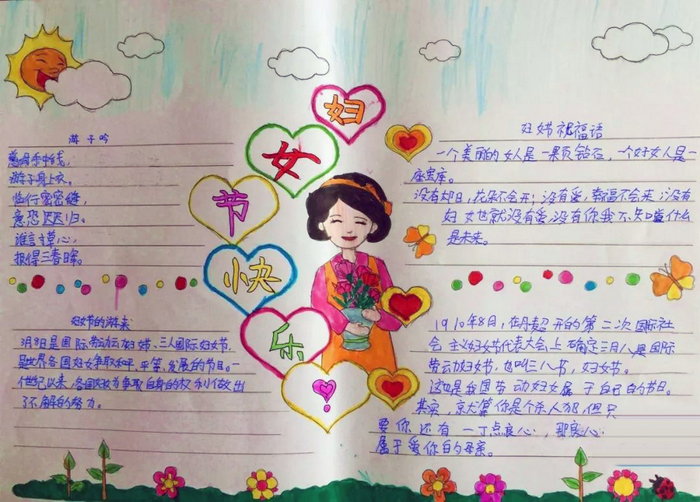 妇
女
节
快
乐
游子吟
慈母手中线,
游子身上衣。
临行密密缝,
意恐迟迟归。
谁言寸草心,
报得三春晖。
妇女节的游来
3月8是国际劳动妇女节,三人国际妇女节
是世界各国妇女争取和平,平等,发展的节日。一
世纪以来,各国妇女为争取自身的权利做出
了不解的努力。
妇女节祝福语
一个美丽的女人是一颗钻石,一个好女人是一
座宝库。
没有太阳,花朵不会开;没有爱,幸福不会来;没有
妇女也就没有爱,没有你我不知道什么
是未来。
1910年8月,在丹麦召开的第二次国际社
会主义妇女代表大会上确定三月八是国际
劳动妇女节,也叫三八节,妇女节。
这也是我国劳动妇女属于自己的节日。
其实,就算你是个杀人犯,但只
要你还有一丁点良心,那良心
属于爱你的母亲。